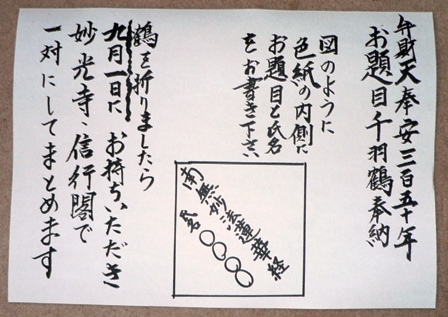 弁財天奉安三百五十年
お題目千羽鶴奉納
図のように
色紙の内側に
お題目と氏名
をお書き下さい
南無妙法蓮華経
氏名〇〇〇〇
鶴を折りましたら
九月一日にお持ちいただき
妙光寺、信行閣で
一対にしてまとめます